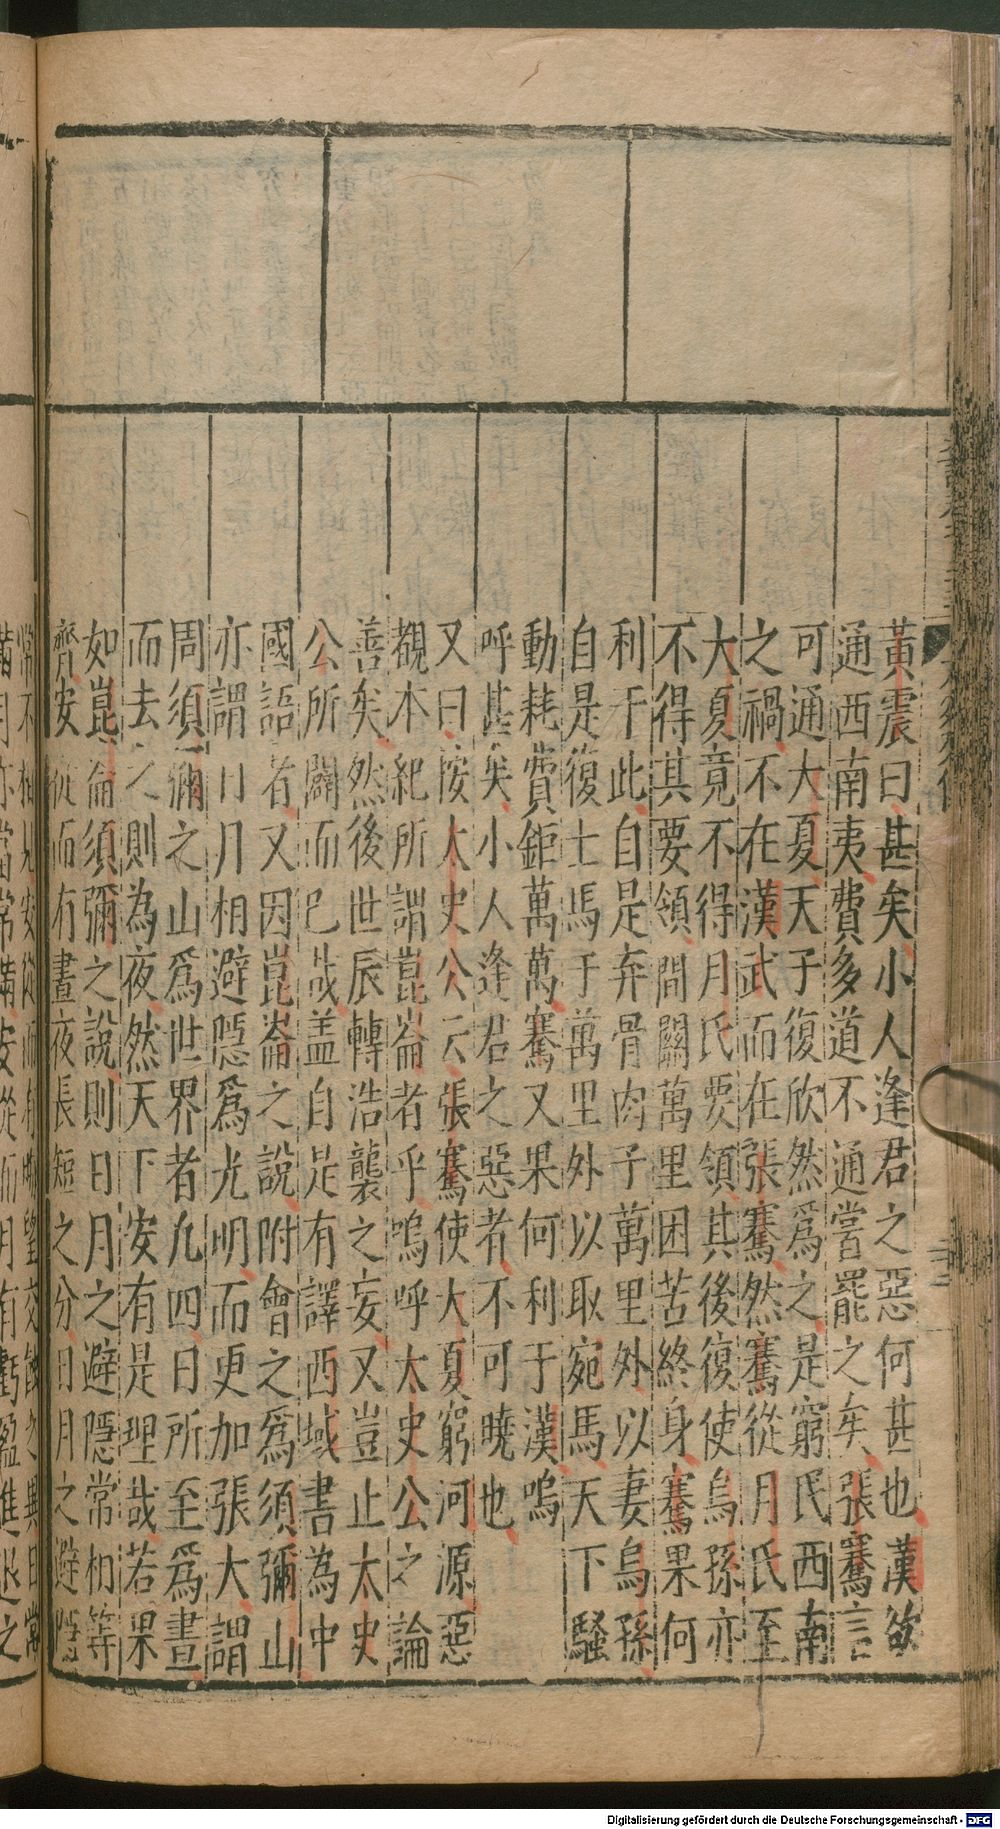 黃震曰甚矣小人逢君之惡何甚也漢欲
通西南夷費多道不通嘗罷之矣張騫言
可通大夏天子復欣然爲之是窮民西南
之禍不在漢武而在張騫然騫從月氏至
大夏竟不得月氏要領其後復使烏孫亦
不得其要領間關萬里困苦終身騫果何
利于此自是弃骨肉子萬里外以妻烏孫
自是復士馬于萬里外以取宛馬天下騷
動耗費鉅萬萬騫又果何利于漢嗚
呼甚矣小人逢君之惡者不可曉也
又曰按太史公云張騫使大夏窮河源惡
觀本紀所謂崑崙者乎嗚呼太史公之論
善矣然後世辰轉浩襲之妄又豈止太史
公所闢而已哉盖自是有譯西域書為中
國語者又因崑崙之說附會之爲須彌山
亦謂日月相避隠爲光明而更加張大謂
周須彌之山爲世界者九四日所至爲晝
而去之則為夜然天下安有是理哉若果
如崑崙須彌之說則日月之避隠常相等
齊安從而有晝夜長短之分日月之避隠
常不相見安從而有晦望交蝕之異日常
滿月亦當常滿安從而月有虧盈進退之
Digitalisierung gefördert durch die Deutsche Forschungsgemeinschaft - DFG